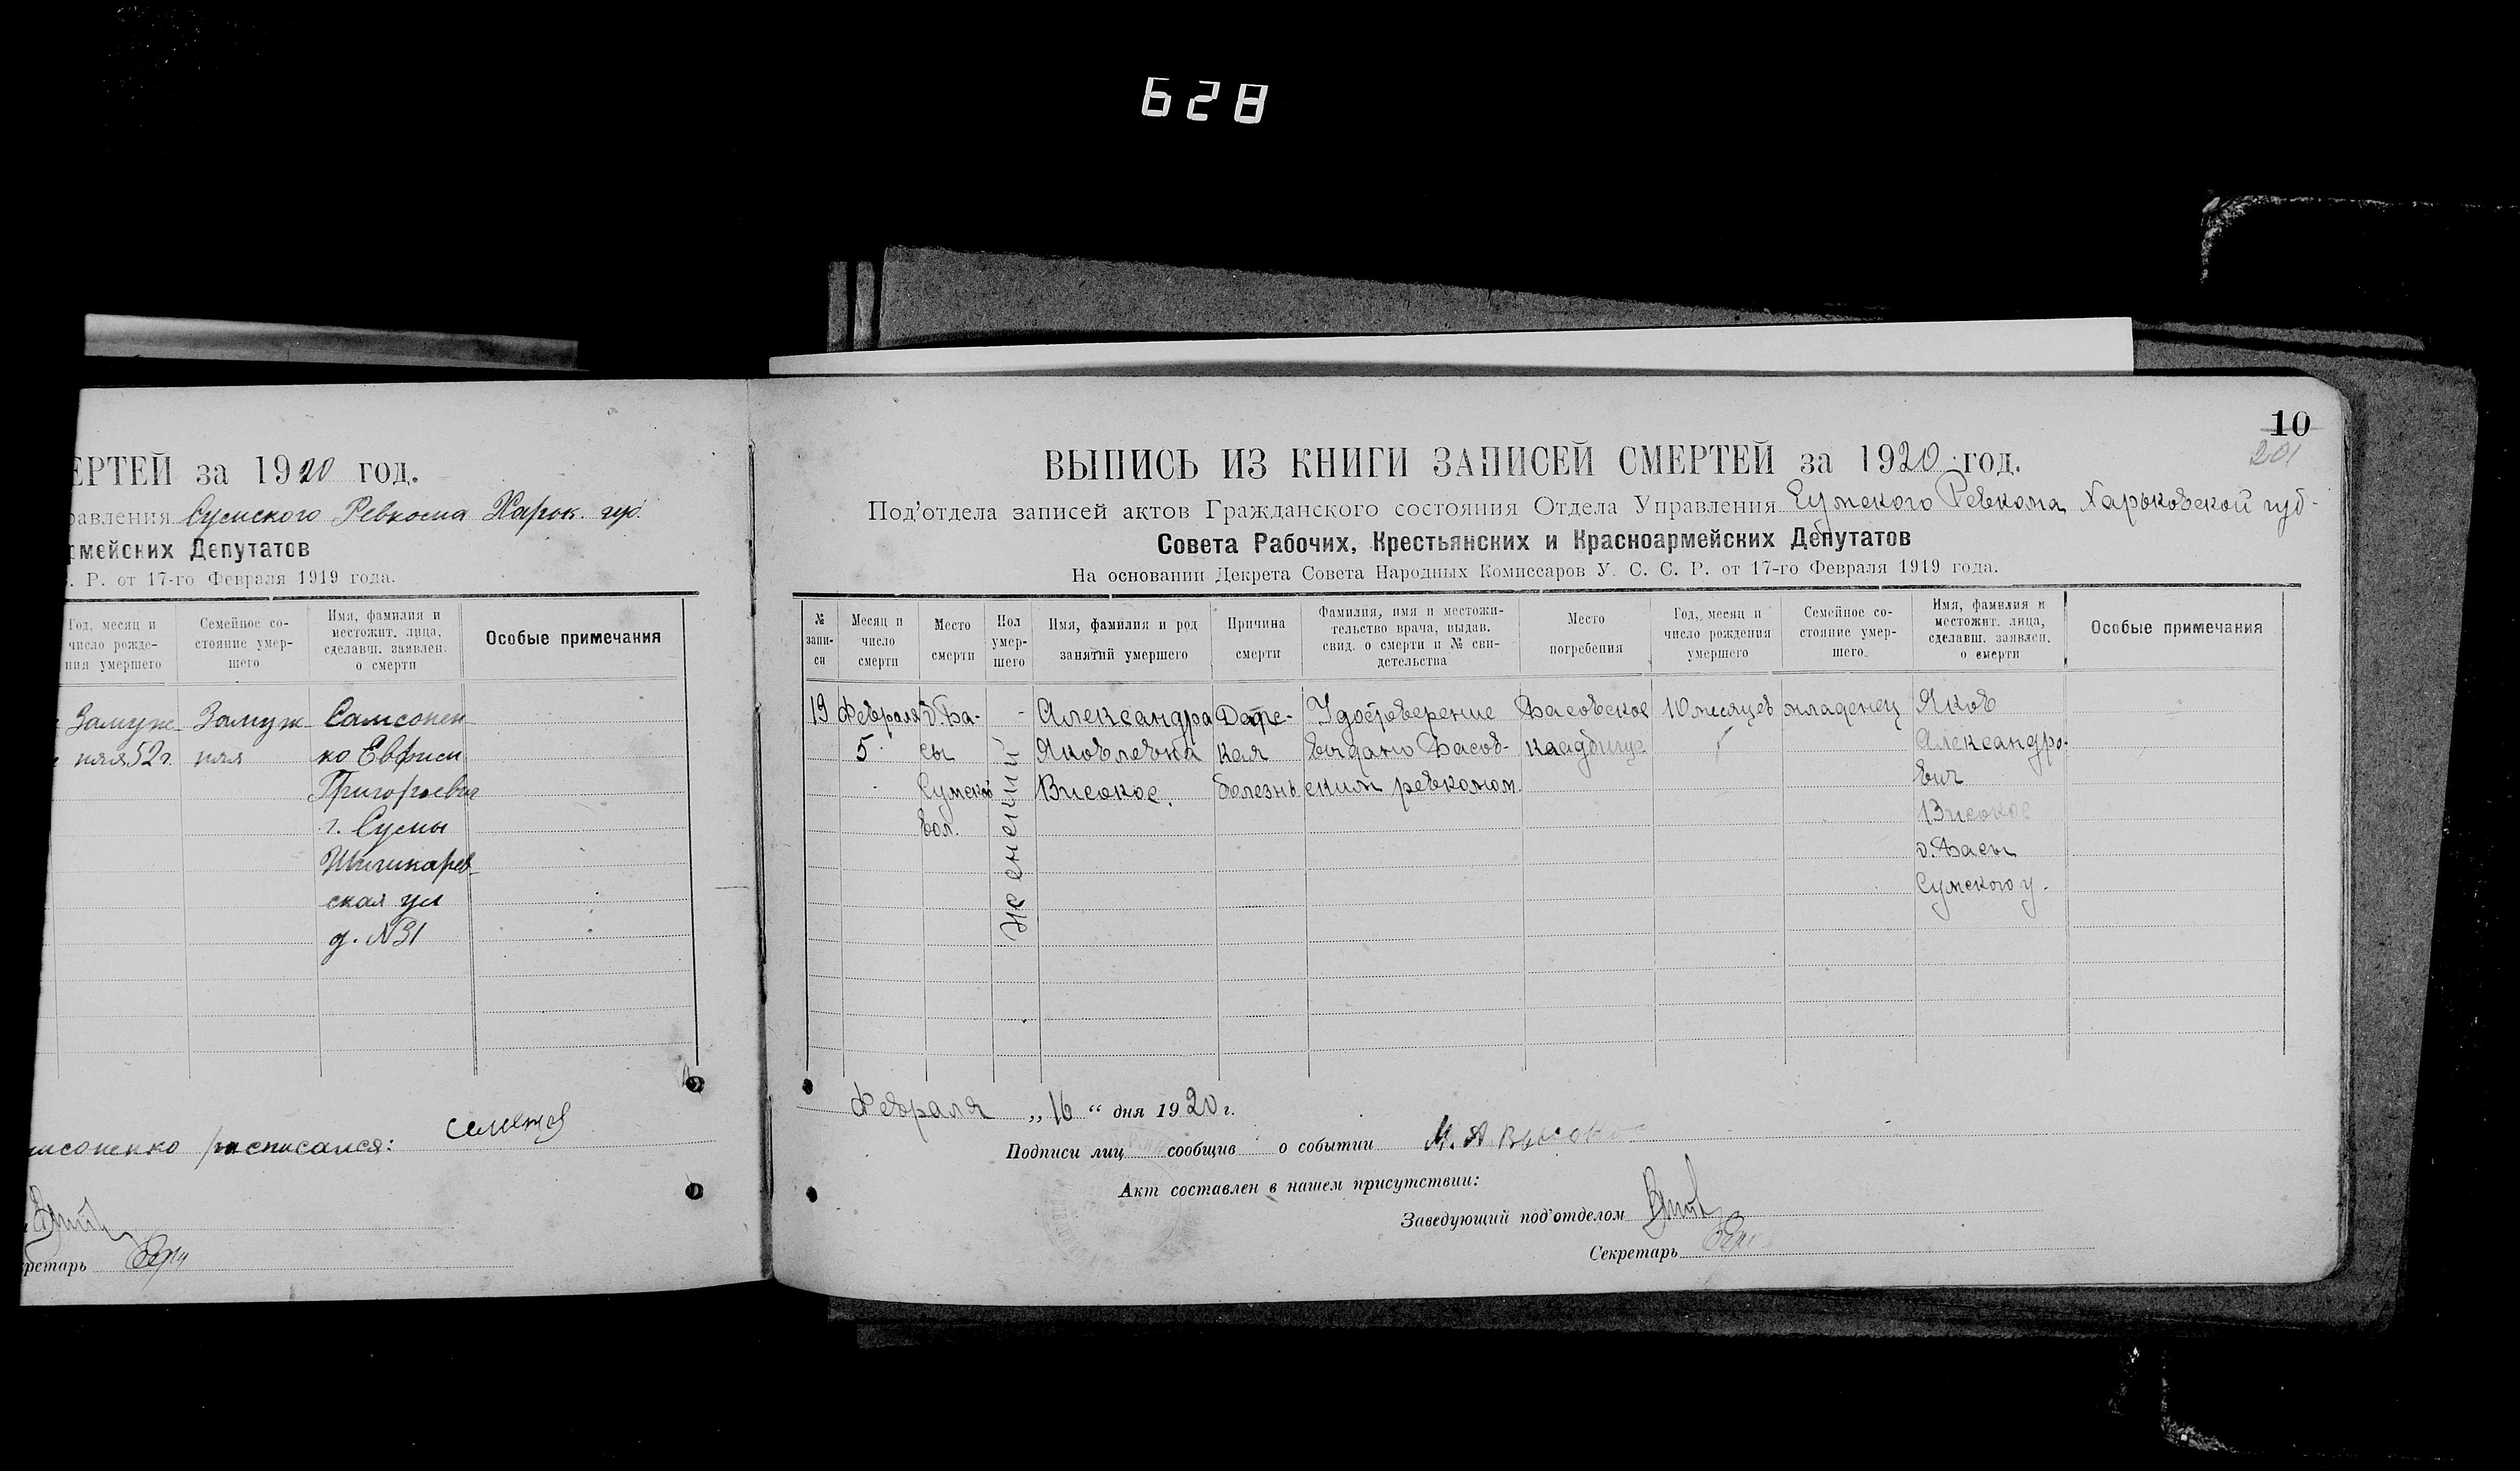 628
ЕРТЕЙ за 1920 год.
равления Сумского Ревкома Харьк. губ.
рмейских Депутатов
. Р. от 17-го Февраля 1919 года.
Год, месяц и число рожде-ния умершего
Семейное со-стояние умер-шего
Имя, фамилия и местожит. лица, сделавш. заявлен. о смерти
Особые примечания
Замуж Замуж Самсонен
няя 52 г. няя ко Евфим
Григорьевич
г. Сумы
ская ул
д. №31
расписался:
ретарь
10
201
ВЫПИСЬ ИЗ КНИГИ ЗАПИСЕЙ СМЕРТЕЙ за 1920 год.
Под'отдела записей актов Гражданского состояния Отдела Управления Сумского Ревкома Харьковской губ-
Совета Рабочих, Крестьянских и Красноармейских Депутатов
На основании Декрета Совета Народных Комиссаров У. С. С. Р. от 17-го Февраля 1919 года.
№ запи-си
Месяц и число смерти
Место смерти
Пол умер-шего
Имя, фамилия и род занятий умершего
Причина смерти
Фамилия, имя и местожи-тельство врача, выдав. свид. о смерти и № сви-детельства
Место погребения
Год, месяц и число рождения умершего
Семейное со-стояние умер-шего
Имя, фамилия и местожит. лица, сделавш. заявлен. о смерти
Особые примечания
19 Февраля д. Ба- Александра Детс- Удостоверение Басовское 10 месяцев младенец Яков
5 сы Яковлевна кая выдано Басов- кладбище Александро-
Сумской Високос. болезнь ским ревкомом вич
вол. Високос
женский д. Басы
Сумского у.
Февраля „16“ дня 1920 г.
Подписи лиц сообщив о событии
Акт составлен в нашем присутствии:
Заведующий под'отделом
Секретарь